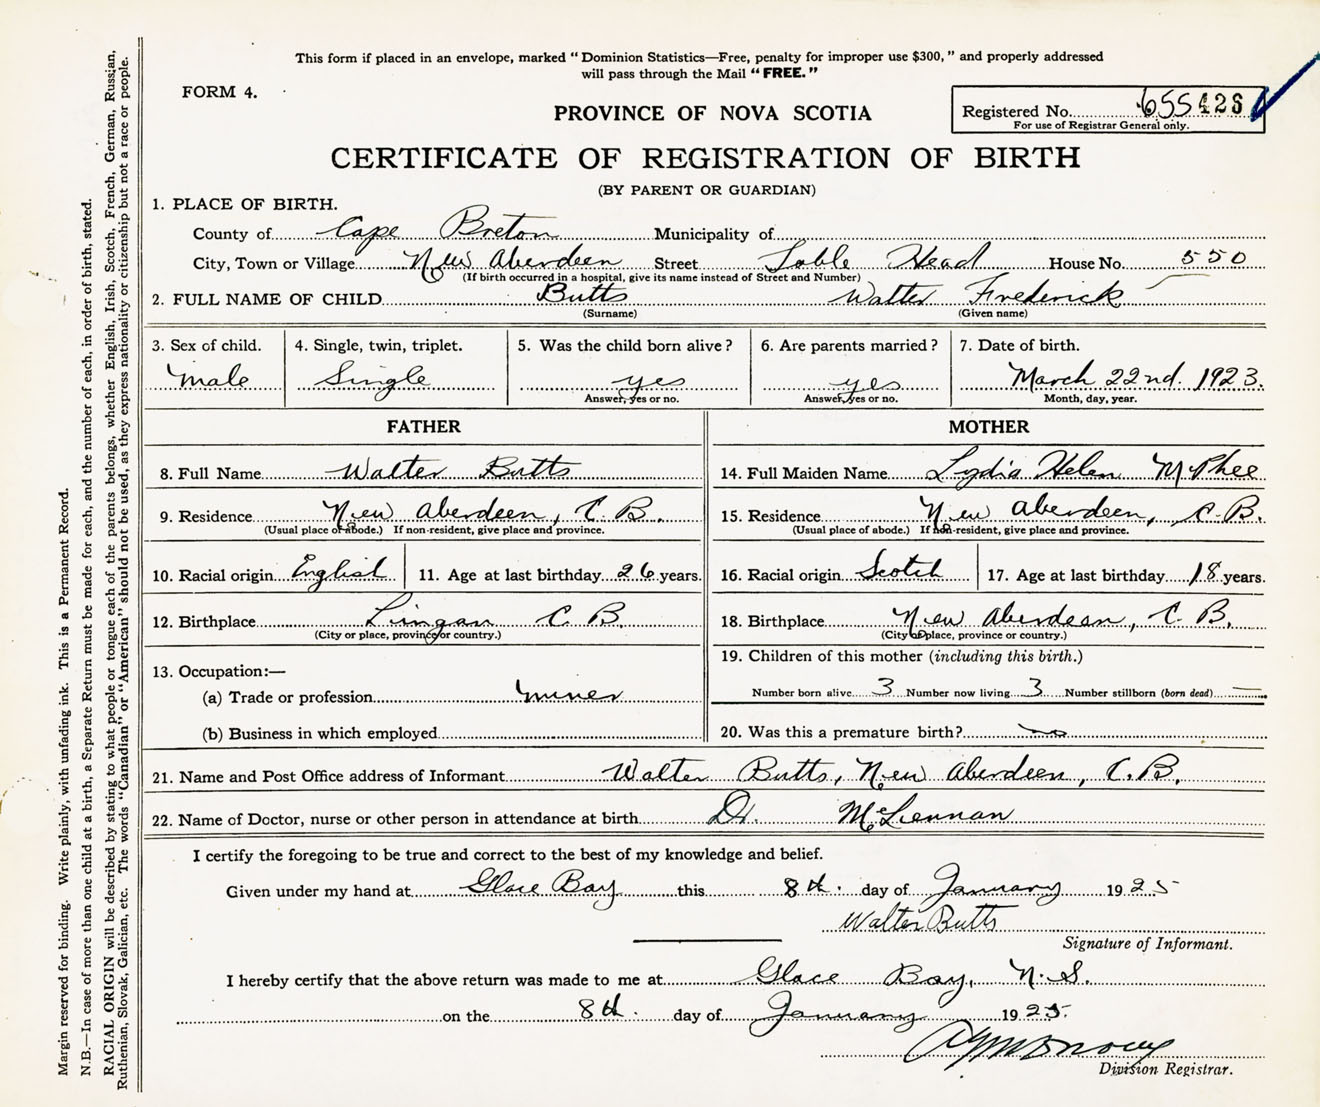 This form if placed in an envelope, marked "Dominion Statistics—Free, penalty for improper use $300," and properly addressed
will pass through the Mail "FREE."
FORM 4.
PROVINCE OF NOVA SCOTIA
Registered No. 655426
For use of Registrar General only.
CERTIFICATE OF REGISTRATION OF BIRTH
(BY PARENT OR GUARDIAN)
1. PLACE OF BIRTH.
County of Cape Breton Municipality of
City, Town or Village New Aberdeen Street Sable Head House No. 550
(If birth occurred in a hospital, give its name instead of Street and Number)
2. FULL NAME OF CHILD Butts Walter Frederick
(Surname) (Given name)
3. Sex of child. 4. Single, twin, triplet. 5. Was the child born alive? 6. Are parents married? 7. Date of birth.
Male Single yes yes March 22nd. 1923.
Answer, yes or no. Answer, yes or no. Month, day, year.
FATHER MOTHER
8. Full Name Walter Butts 14. Full Maiden Name Lydia Helen McPhee
9. Residence New Aberdeen, C. B. 15. Residence New Aberdeen, C. B.
(Usual place of abode.) If non-resident, give place and province. (Usual place of abode.) If non-resident, give place and province.
10. Racial origin English 11. Age at last birthday 26 years. 16. Racial origin Scotch 17. Age at last birthday 18 years.
12. Birthplace Lingan C. B. 18. Birthplace New Aberdeen, C. B.
(City or place, province or country.) (City or place, province or country.)
13. Occupation:— 19. Children of this mother (including this birth.)
(a) Trade or profession miner Number born alive 3 Number now living 3 Number stillborn (born dead) —
(b) Business in which employed 20. Was this a premature birth? no
21. Name and Post Office address of Informant Walter Butts, New Aberdeen, C. B.
22. Name of Doctor, nurse or other person in attendance at birth Dr. McLennan
I certify the foregoing to be true and correct to the best of my knowledge and belief.
Given under my hand at Glace Bay this 8th. day of January 1925
Walter Butts
Signature of Informant.
I hereby certify that the above return was made to me at Glace Bay, N. S.
on the 8th. day of January 1925.
Division Registrar.
Margin reserved for binding. Write plainly, with unfading ink. This is a Permanent Record.
N.B.—In case of more than one child at a birth, a Separate Return must be made for each, and the number of each, in order of birth, stated.
RACIAL ORIGIN will be described by stating to what people or tongue each of the parents belongs, whether English, Irish, Scotch, French, German, Russian,
Ruthenian, Slovak, Galician, etc. The words "Canadian" or "American" should not be used, as they express nationality or citizenship but not a race or people.